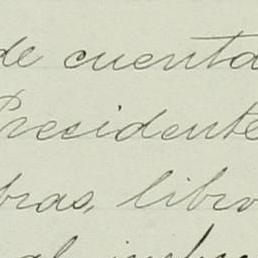 de cuenta
Presidente
bras, libro
al